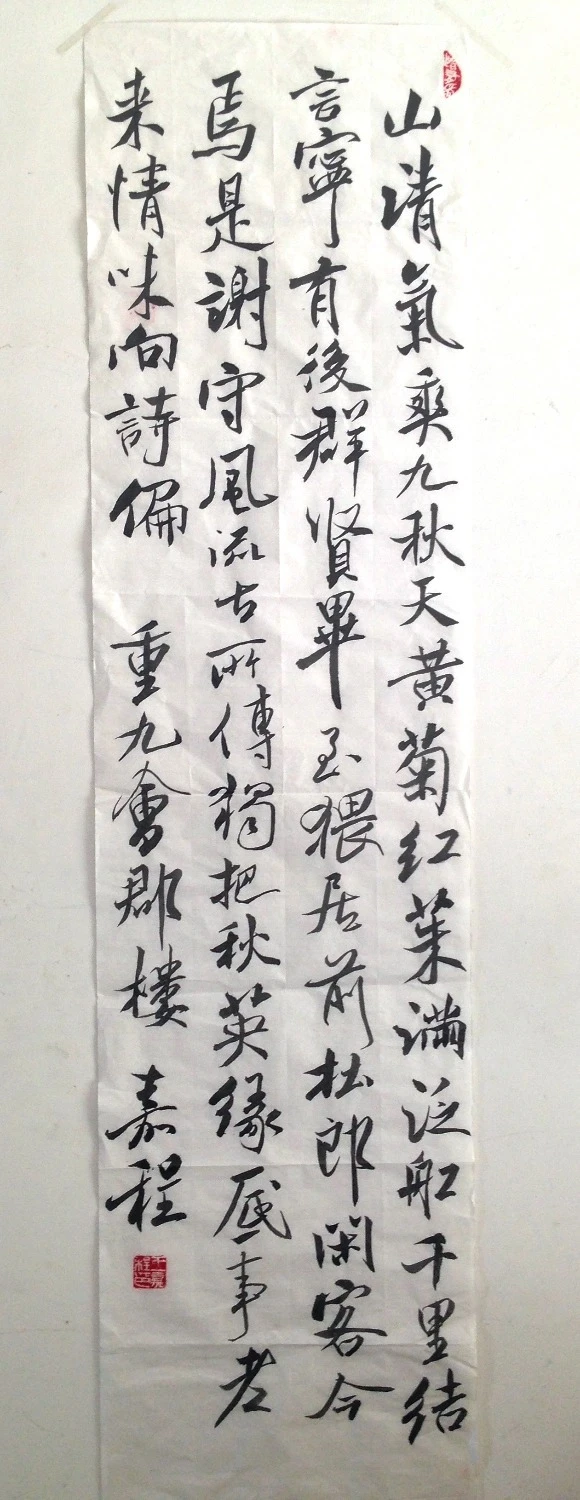 山清氣爽九秋天黄菊红茱满泛舡千里结
言寧有後群賢畢至猥居前杜郎闲客今
焉是謝守風流古所傳獨把秋英缘底事老
来情味向詩偏 重九會郡樓 嘉程